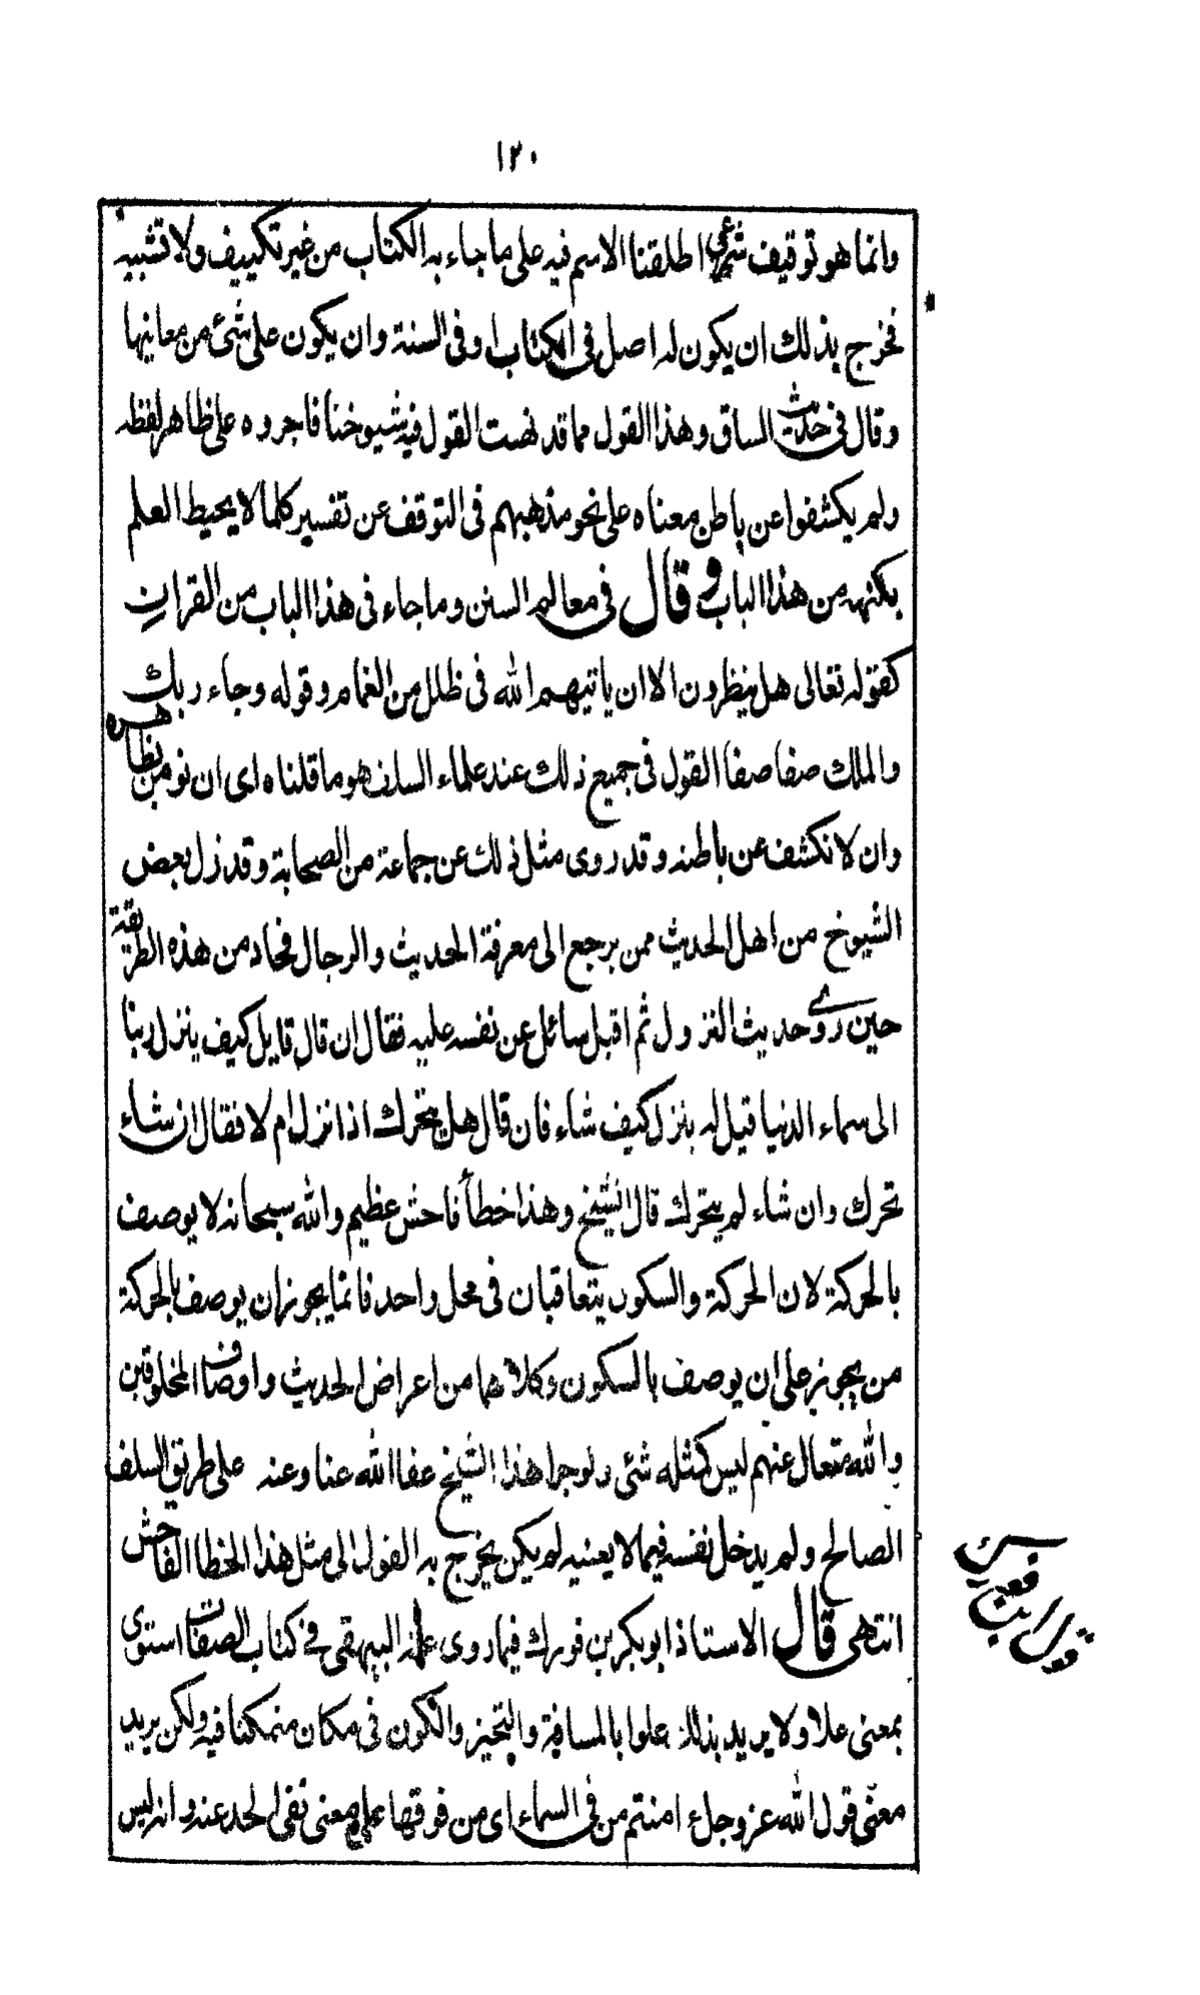 ١٢٠
وانما هو توقيف شرعي اطلقنا الاسم فيه على ما جاء به الكتاب من غير تكييف ولا تشبيه
فخرج بذلك ان يكون له اصل فى الكتاب او فى السنة وان يكون على شئ من معانيها
وقال فى حديث الساق وهذا القول مما قد نهت القول فيه شيوخنا فاجروه على ظاهر لفظه
ولم يكشفوا عن باطن معناه على نحو مذهبهم فى التوقف عن تفسير كلما لا يحيط العلم
بكنهه من هذا الباب وقال فى معالم السنن وما جاء فى هذا الباب من القران
كقوله تعالى هل ينظرون الا ان ياتيهم الله فى ظلل من الغمام وقوله وجاء ربك
والملك صفا صفا القول فى جميع ذلك عند علماء السلف هو ما قلناه اى ان نومن بظاهره
وان لا نكشف عن باطنه وقد روى مثل ذلك عن جماعة من الصحابة وقد زل بعض
الشيوخ من اهل الحديث ممن يرجع الى معرفة الحديث والرجال فحاد من هذه الطريقة
حين روى حديث النزول ثم اقبل سائل عن نفسه عليه فقال ان قال قايل كيف ينزل ربنا
الى سماء الدنيا قيل له ينزل كيف شاء فان قال هل يتحرك اذا نزل ام لا فقال ان شاء
تحرك وان شاء لم يتحرك قال الشيخ وهذا خطأ فاحش عظيم والله سبحانه لا يوصف
بالحركة لان الحركة والسكون يتعاقبان فى محل واحد فانما يجوز ان يوصف بالحركة
من يجوز على ان يوصف بالسكون وكلاهما من اعراض الحديث واوصاف المخلوقين
والله متعال عنهم ليس كمثله شئ ولو جرا هذا الشيخ عفا الله عنا وعنه على طريق السلف
الصالح ولم يدخل نفسه فيما لا يعنيه لم يكن يخرج به القول الى مثل هذا الخطا الفاحش
انتهى قال الاستاذ ابو بكر بن فورك فيما روى عنه البيهقى فى كتاب الصفات استوى
بمعنى علا ولا يريد بذلك علوا بالمسافة والتحيز والكون فى مكان متمكنا فيه ولكن يريد
معنى قول الله عز وجل ءامنتم من فى السماء اى من فوقها على معنى نفى الحد عنه وانه ليس
قول ابن فورك